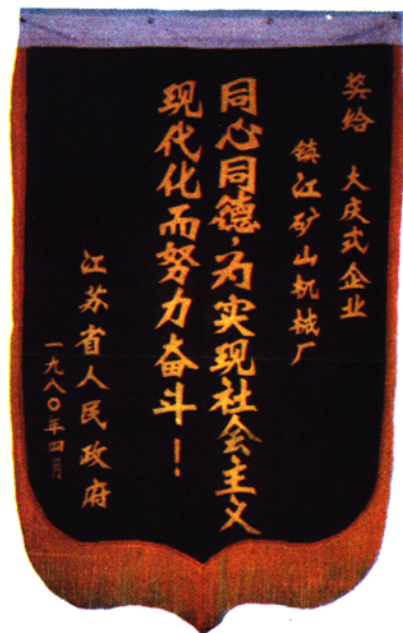 奖给 大庆式企业
镇江矿山机械厂
同心同德,为实现社会主义
现代化而努力奋斗!
江苏省人民政府
一九八〇年四月